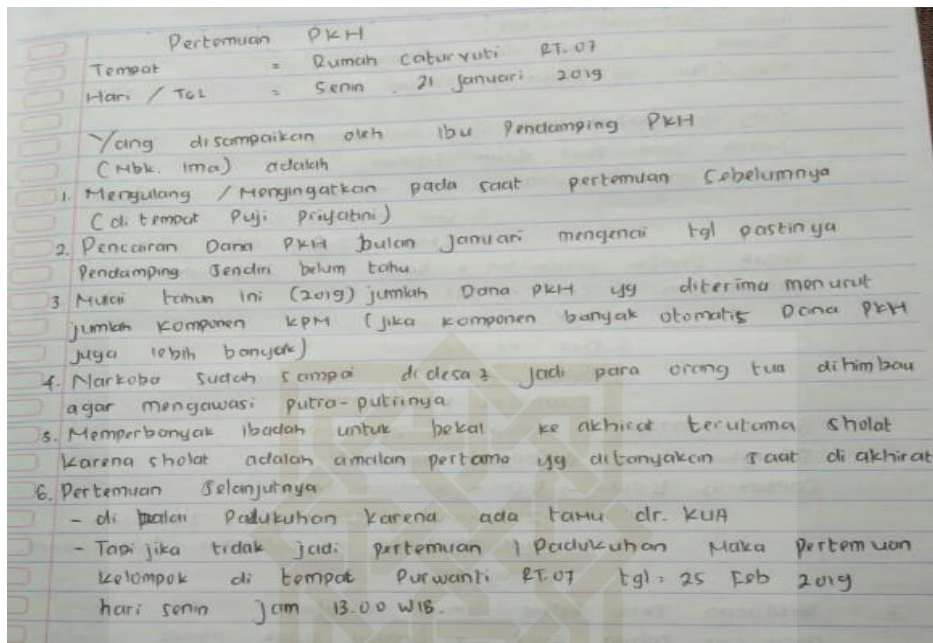 Pertemuan PKH
Tempat = Rumah Caturyuti RT.07
Hari / TGL = Senin, 21 Januari 2019
Yang disampaikan oleh Ibu Pendamping PKH
(Mbk. Ima) adalah
1. Mengulang / Mengingatkan pada saat pertemuan sebelumnya
(di tempat Puji Priyatini)
2. Pencairan Dana PKH bulan Januari mengenai tgl pastinya
Pendamping Sendiri belum tahu
3 Mulai tahun ini (2019) jumlah Dana PKH yg diterima menurut
jumlah komponen KPM (jika komponen banyak otomatis Dana PKH
juga lebih banyak)
4. Narkoba sudah sampai di desa2 jadi para orang tua dihimbau
agar mengawasi putra-putrinya
5. Memperbanyak ibadah untuk bekal ke akhirat terutama sholat
karena sholat adalah amalan pertama yg ditanyakan saat di akhirat
6. Pertemuan Selanjutnya
- di balai Padukuhan karena ada tamu dr. KUA
- Tapi jika tidak jadi pertemuan 1 Padukuhan Maka Pertemuan
kelompok di tempat Purwanti RT.07 tgl = 25 Feb 2019
hari senin jam 13.00 WIB.